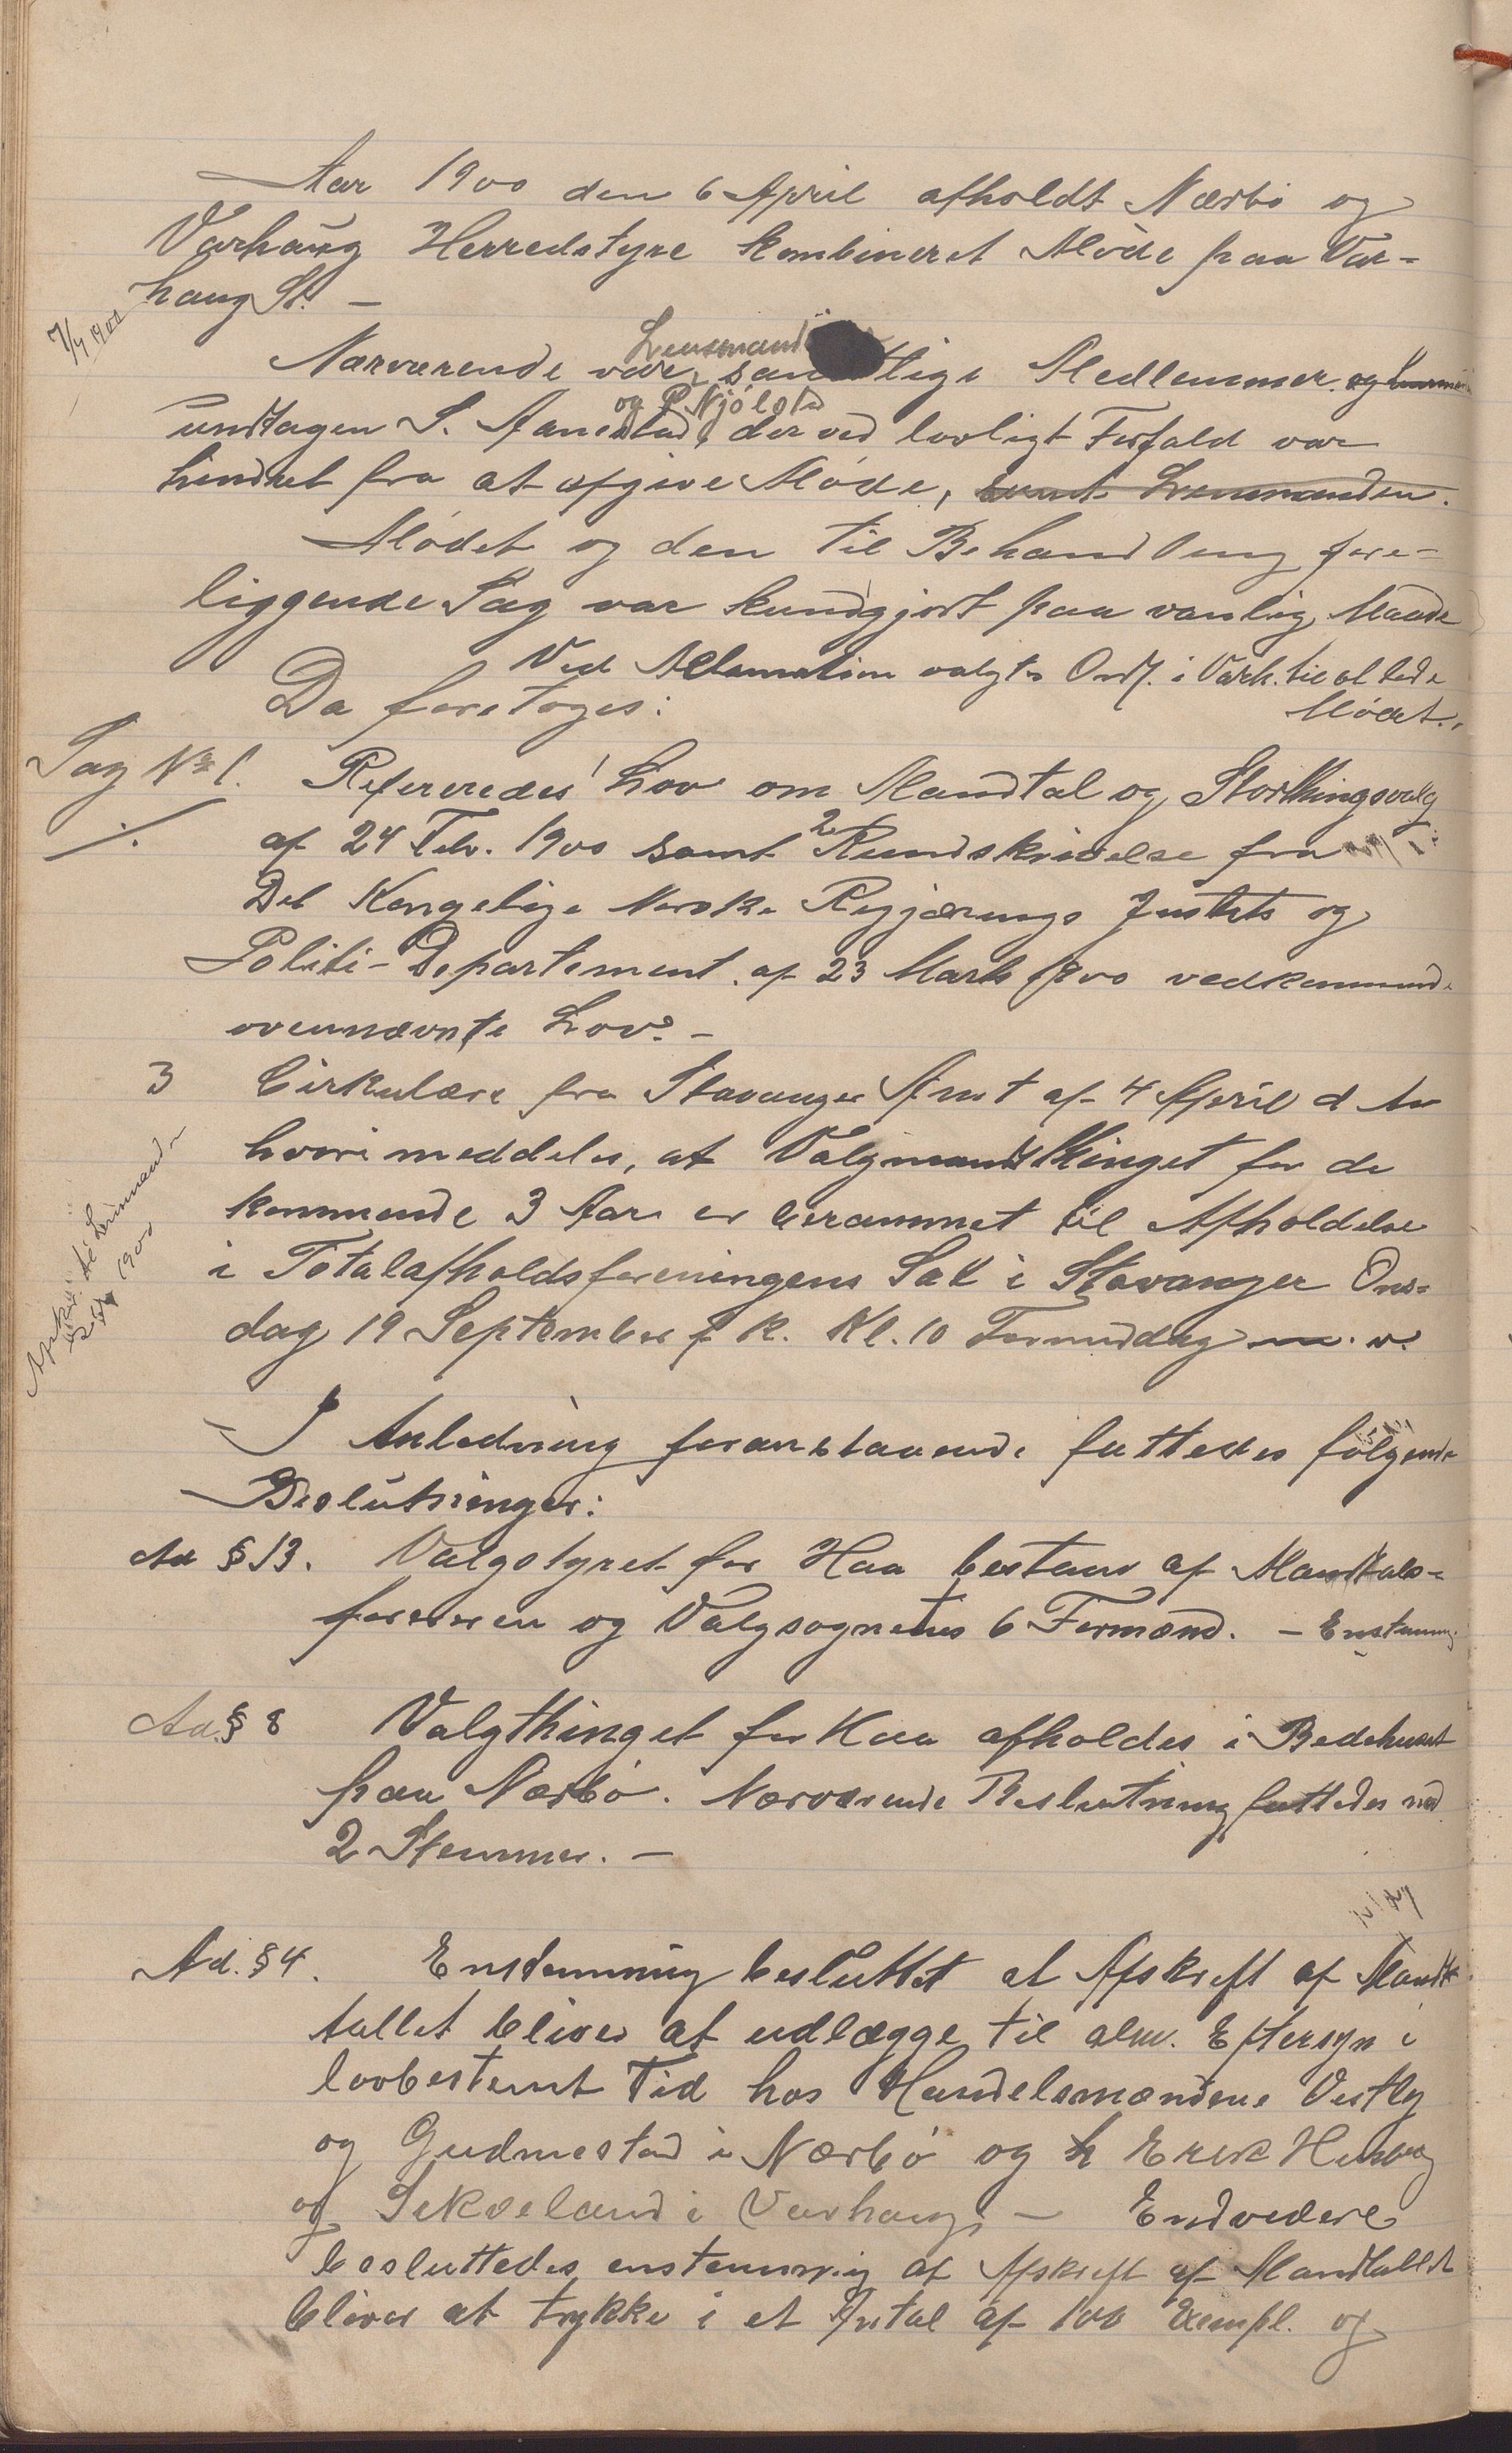 Aar 1900 den 6 April afholdt Nærbø og
Varhaug Herredstyre kombineret Møde paa Var-
haug St. —
7/4 1900
Lensmanden
Nærværende var samtlige Medlemmer
og P. Njølstad
undtagen S. Aanestad, der ved lovligt Forfald var
hindret fra at afgive Møde, samt Lensmanden.
Mødet og den til Behandling fore-
liggende Sag var kundgjort paa vanlig Maade
Ved Aclamation valgtes Ordf. i Varh. til at lede
Mødet.
Da foretoges:
Sag No 1. Refereredes Lov om Mandtal og Storthingsvalg
af 24 Feb. 1900 samt 2 Rundskrivelse fra
Det Kongelige Norske Regjærings Justits og
Politi-Departement af 23 Marts 1900 vedkommende
ovennævnte Lov. —
3 Cirkulære fra Stavanger Amt af 4 April d Aa
hvori meddeles, at Valgmandsthinget for de
kommende 3 Aar er berammet til Afholdelse
i Totalafholdsforeningens Sal i Stavanger Ons-
dag 19 September f k. Kl. 10 Formiddag m. v.
I Anledning foranstaaende fattedes følgende
Beslutninger:
Ad § 13. Valgstyret for Haa bestaar af Mandtals-
føreren og Valgsognets 6 Formænd. — Enstemmig
Ad. § 8 Valgthinget for Haa afholdes i Bedehuset
paa Nærbø. Nærværende Beslutning fattedes mod
2 Stemmer. —
Ad. § 4. Enstemmig besluttet at Afskrift af Mandt-
tallet bliver at udlægge til alm. Eftersyn i
lovbestemt Tid hos Handelsmændene Vestly
og Gudmestad i Nærbø og Erik Husvæg
og Sikveland i Varhaug. — Endvidere
besluttedes enstemmig at Afskrift af Mandtallet
bliver at trykke i et Antal af 100 Exempl. og